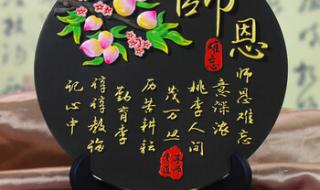 師恩
难忘
师恩难忘
意深浓
桃李人间
茂万丛
历苦耕耘
勤育李
谆谆教诲
记心中